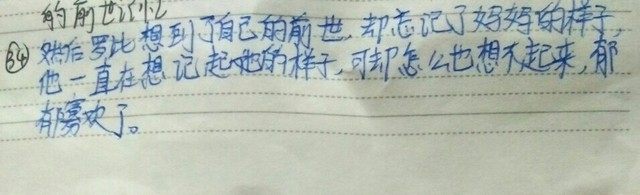 的前世记忆
㉞ 然后罗比想到了自己的前世,却忘记了妈妈的样子,
他一直在想记起她的样子,可却怎么也想不起来,郁
郁寡欢了。